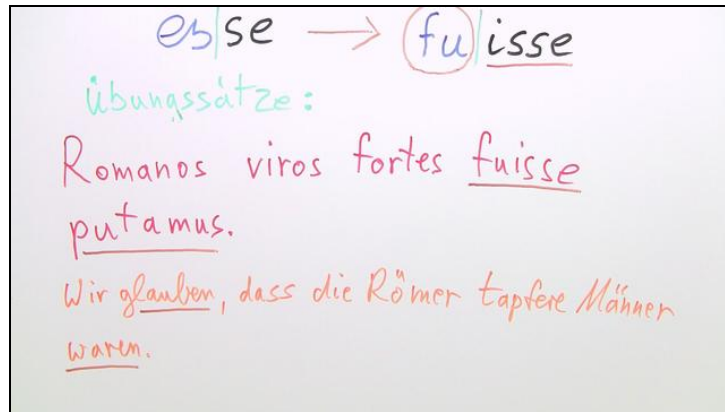 es|se → fu|isse
Übungssätze:
Romanos viros fortes fuisse
putamus.
Wir glauben, dass die Römer tapfere Männer
waren.